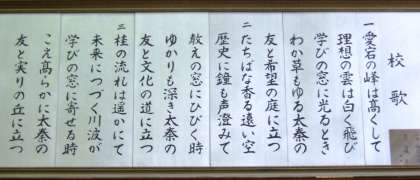 校歌
一 愛宕の峰は高くして
理想の雲は白く飛び
学びの窓に光るとき
わか草もゆる太秦の
友と希望の庭に立つ
二 たちばな香る遠い空
歴史に鐘も声澄みて
教えの窓にひびく時
ゆかりも深き太秦の
友と文化の道に立つ
三 桂の流れは遥かにて
未来につづく川波が
学びの窓に寄せる時
こえ高らかに太秦の
友と実りの丘に立つ